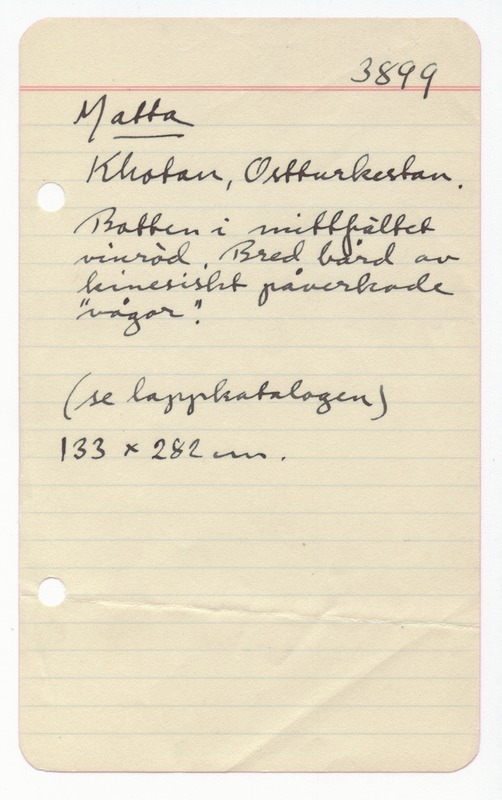 3899
Matta
Khotan, Ostturkestan.
Botten i mittfältet
vinröd. Bred bård av
kinesiskt påverkade
"vågor".
(se lappkatalogen)
133 x 282 cm.